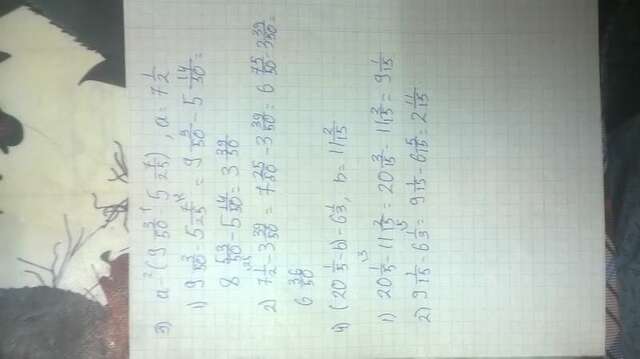 3) a - (9 3/50 - 5 7/25), a = 7 1/2
1) 9 3/50 - 5 7/25 = 9 3/50 - 5 14/50 =
8 53/50 - 5 14/50 = 3 39/50
2) 7 1/2 - 3 39/50 = 7 25/50 - 3 39/50 = 6 75/50 - 3 39/50 =
6 36/50
4) (20 1/5 - b) - 6 1/3, b = 11 2/15
1) 20 1/5 - 11 2/15 = 20 3/15 - 11 2/15 = 9 1/15
2) 9 1/15 - 6 1/3 = 9 1/15 - 6 5/15 = 2 11/15